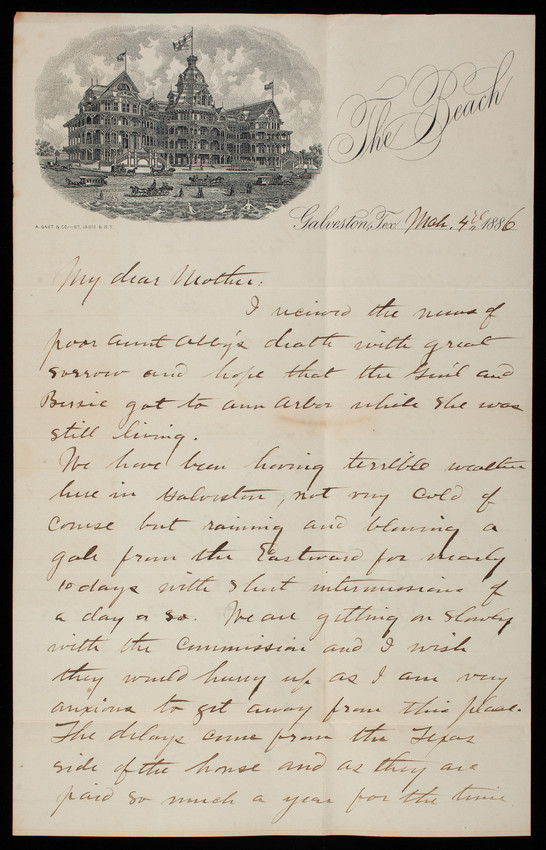 The Beach
A. GAST & CO.—ST. LOUIS & N.Y.
Galveston, Tex Mch. 4th 1886
My dear Mother:
I recieved the news of
poor Aunt Abby's death with great
sorrow and hope that the Genl and
Bessie got to Ann Arbor while she was
still living.
We have been having terrible weather
here in Galveston, not very cold of
course but raining and blowing a
gale from the Eastward for nearly
10 days with short intermissions of
a day or so. We are getting on slowly
with the Commission and I wish
they would hurry up as I am very
anxious to get away from this place.
The delays come from the Texas
side of the house and as they are
paid so much a year for the time